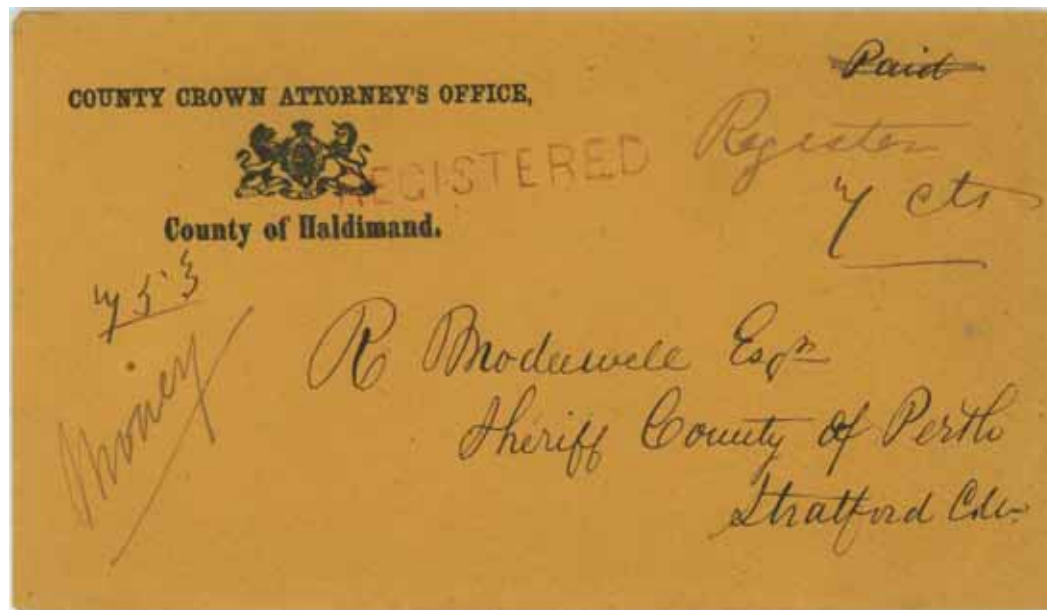 COUNTY CROWN ATTORNEY'S OFFICE,
County of Haldimand.
REGISTERED
Paid
Register
7 cts
753
Money
R Moderwell Esqr
Sheriff County of Perth
Stratford C.W.